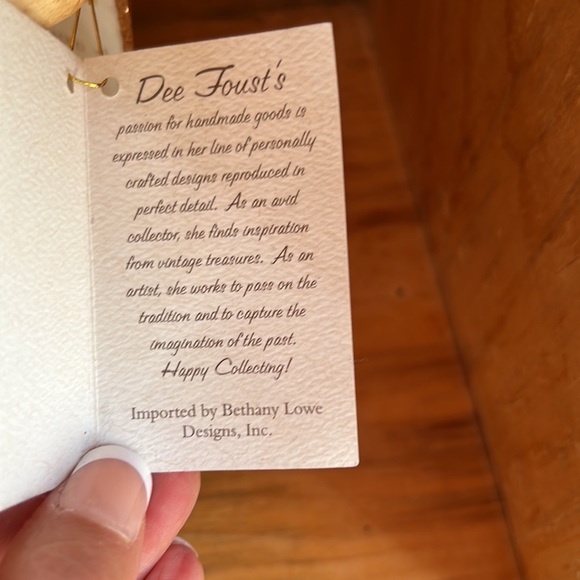 Dee Foust's
passion for handmade goods is
expressed in her line of personally
crafted designs reproduced in
perfect detail. As an avid
collector, she finds inspiration
from vintage treasures. As an
artist, she works to pass on the
tradition and to capture the
imagination of the past.
Happy Collecting!
Imported by Bethany Lowe
Designs, Inc.